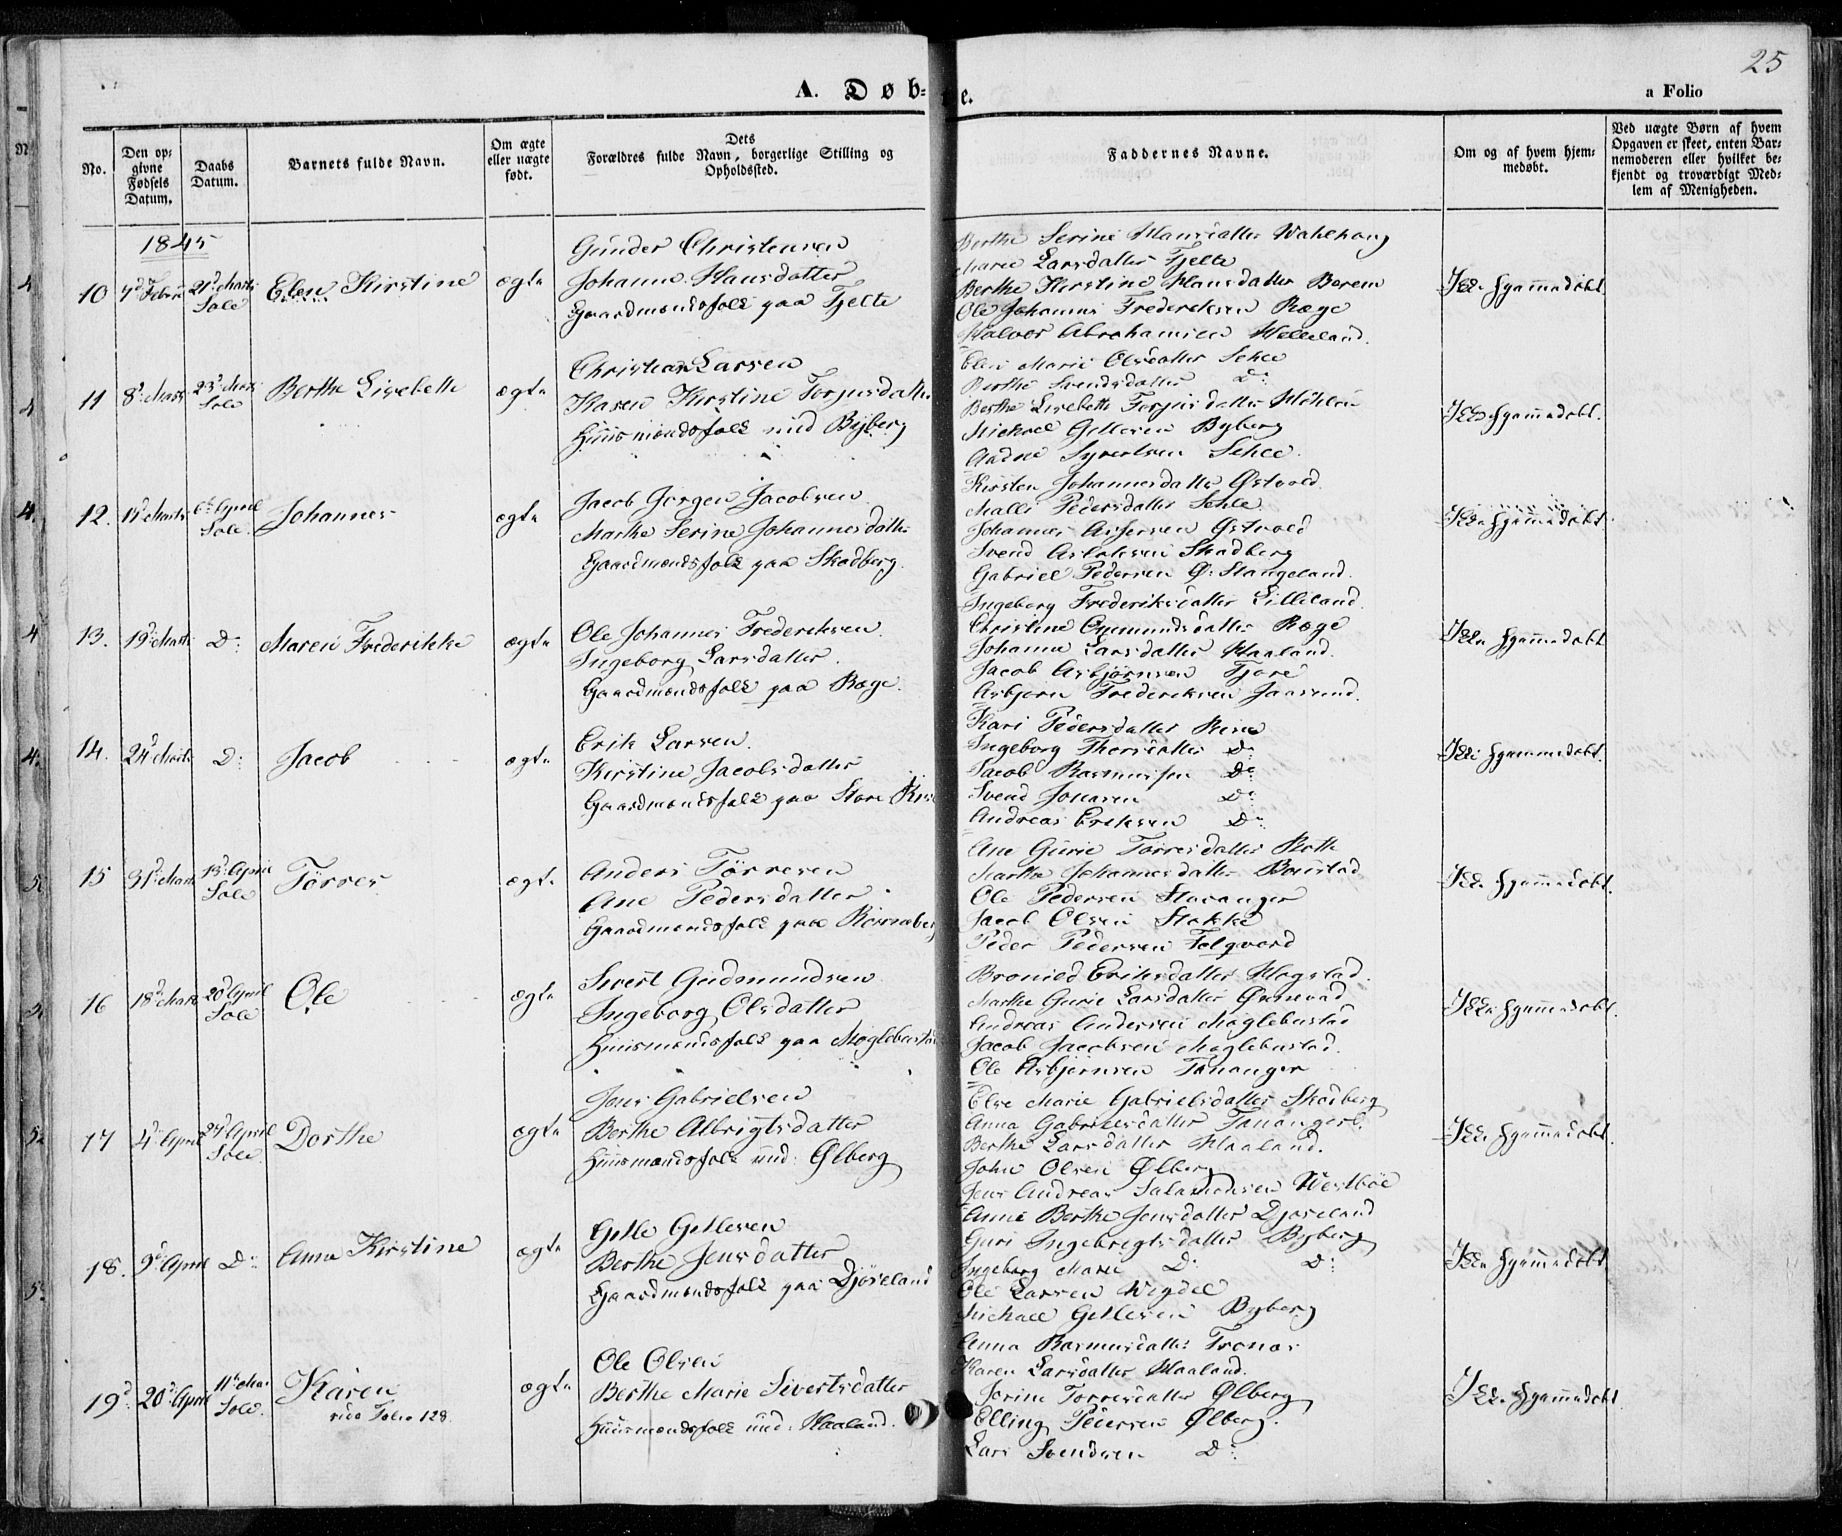 25
A. Døb- e.
a Folio
No.
Den op-
givne
Fødsels
Datum.
Daabs
Datum.
Barnets fulde Navn.
Om ægte
eller uægte
født.
Dets
Forældres fulde Navn, borgerlige Stilling og
Opholdssted.
Faddernes Navne.
Om og af hvem hjem-
medøbt.
Ved uægte Børn af hvem
Opgaven er skeet, enten Bar-
nemoderen eller hvilket be-
kjendt og troværdigt Med-
lem af Menigheden.
1845
10 Elen Kirstine ægte
Gunder Christensen
Johanne Hansdatter
Gaardmandsfolk paa Tjelte
Berthe Serine Hansdatter
Maren Larsdatter Tjelte
Berthe Kirstine Hansdatter
Ole Johannes Frederiksen Ræge
Halvor Abrahamsen Helleland
Ikke hjemmedøbt.
11 8d Marts 23d Marts Sole Berthe Lisebette ægte
Christian Larsen
Karen Kirstine Torjusdatter
Huusmandsfolk und Byberg
Elen Marie Olsdatter Sehle
Berthe Svendsdatter Do
Berthe Lisebette Torjusdatter
Michael Gitlesen Byberg
Aadne Syvertsen Sehle
Ikke hjemmedøbt.
12. 6d April Sole. Johannes ægte
Jacob Jørgen Jacobsen
Marthe Serine Johannesdatter
Gaardmandsfolk paa Skadberg.
Kirsten Johannesdatter Østvold
Malli Pedersdatter Sehle
Johannes Østvold
Svend Aslaksen Skadberg
Gabriel Pedersen Ø: Stangeland.
Ikke hjemmedøbt.
13. 19d Marts Do Maren Frederikke ægte
Ole Johannes Frederiksen.
Ingeborg Larsdatter.
Gaardmandsfolk paa Ræge.
Ingeborg Frederiksdatter Lilleland.
Christine Ommundsdatter Ræge
Johanne Larsdatter Haaland.
Jacob Asbjørnsen Tjore
Asbjørn Frederiksen Jaasund.
Ikke hjemmedøbt
14. 24d Marts Do Jacob ægte
Erik Larsen.
Kirstine Jacobsdatter
Gaardmandsfolk paa Store
Kari Pedersdatter
Ingeborg Do
Jacob Rasmussen Do
Svend Jonasen Do
Andreas Eriksen Do
Ikke hjemmedøbt.
15 31d Marts 13d April Sole Tørres ægte
Anders Tørresen
Ane Pedersdatter
Gaardmandsfolk paa
Ane Gurie Tørresdatter Roth
Marthe Johannesdatter
Ole Pedersen Stavanger
Jacob Olsen Stokke
Peder Pedersen
Ikke hjemmedøbt.
16 18d Marts 20d April Sole Ole ægte
Sivert Gudmundsen
Ingeborg Olsdatter
Huusmandsfolk paa
Eriksdatter Hogstad.
Marthe Gurie Larsdatter
Andreas Andersen Møglebustad
Jacob Jacobsen Møglebustad.
Ole Asbjørnsen Tananger
Ikke hjemmedøbt.
17 4d April 24d April Sole. Dorthe ægte
Jens Gabrielsen
Berthe Albrigtsdatter
Huusmandsfolk und: Ølberg
Else Marie Gabrielsdatter Skadberg
Anna Gabrielsdatter
Berthe Larsdatter Haaland.
John Olsen Ølberg
Jens Andreas Salamonsen Westbøe
Ikke hjemmedøbt.
18. 9d April Do Anna Kirstine ægte
Gitle Gitlesen
Berthe Jensdatter
Gaardmandsfolk paa Djøseland
Anne Berthe Jensdatter Djøseland
Guri Ingebrigtsdatter Byberg
Ingeborg Marie Do Do
Ole Larsen Wigdel
Michael Gitlesen Byberg
Ikke hjemmedøbt
19d 20d April 11d Mai Sole. Karen
vide Folio 128.
ægte
Ole Olsen
Berthe Marie Sivertsdatter
Huusmandsfolk und: Haaland.
Anna Rasmusdatter
Karen Larsdatter Haaland.
Serine Tørresdatter Ølberg
Elling Pedersen Ølberg.
Lars Svendsen Do
Ikke hjemmedøbt